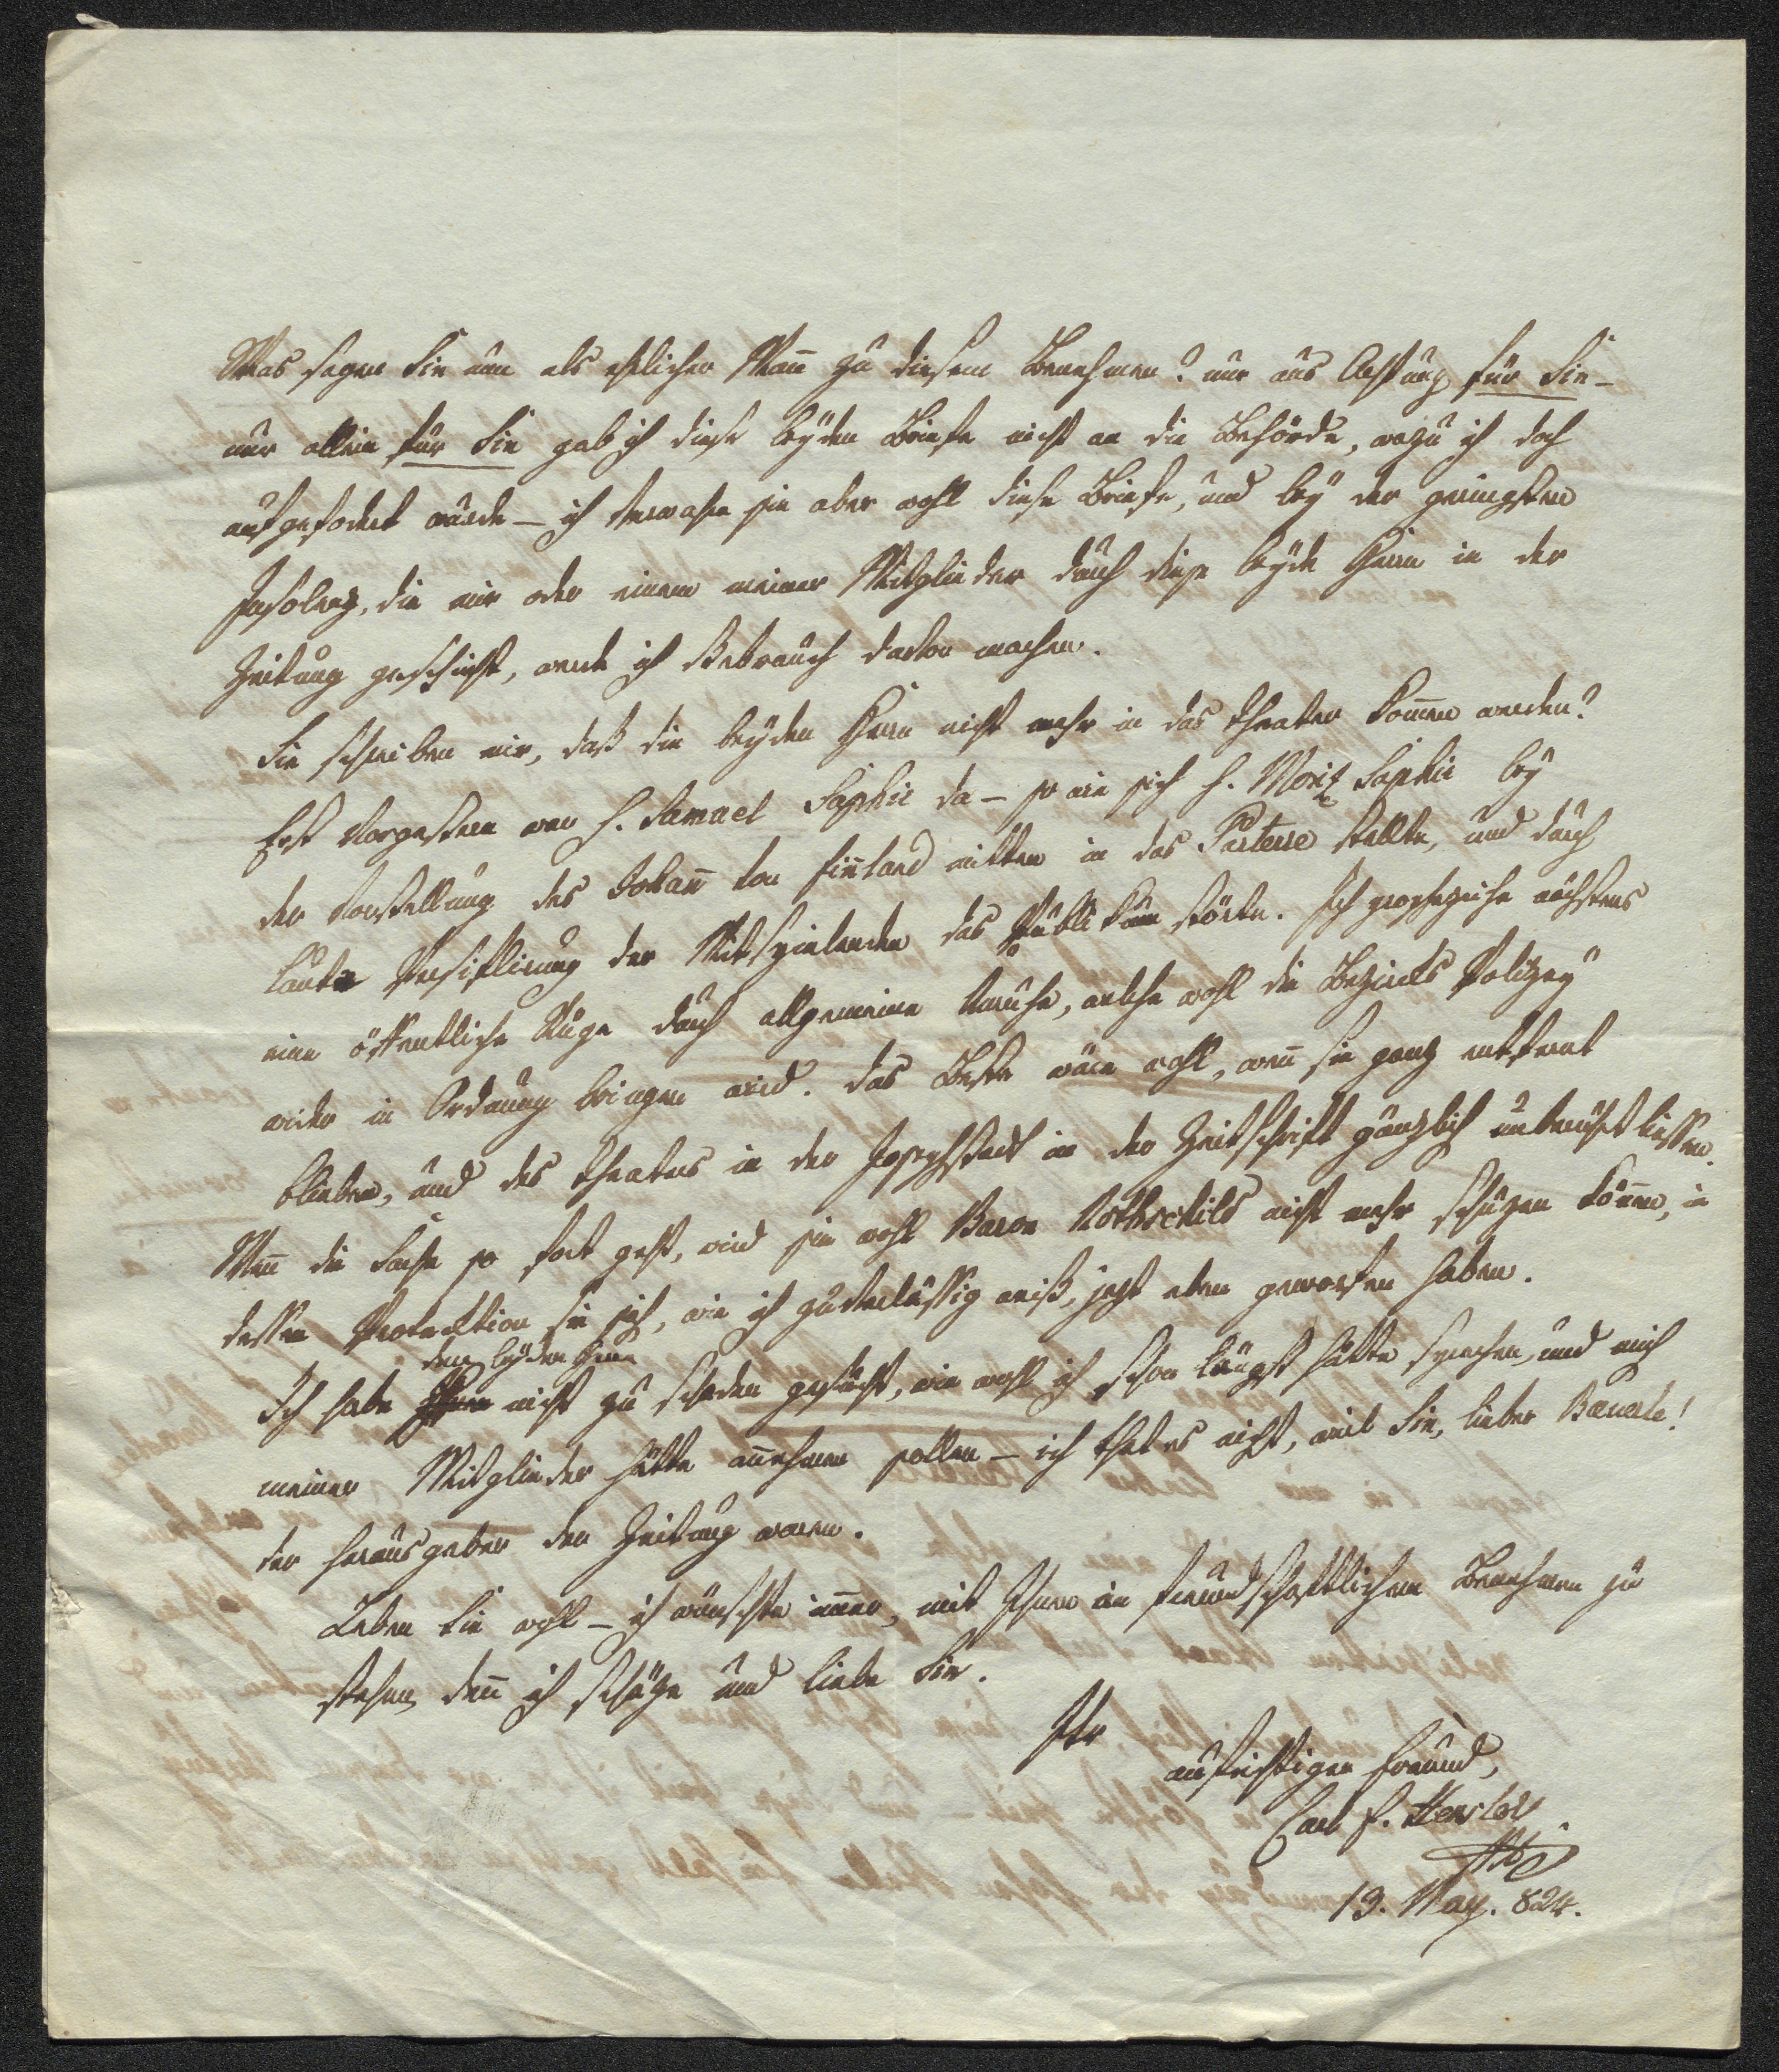 Was sagen Sie nun als ehrlicher Mañ zu diesem Benehmen? nur aus Achtung für Sie –
nur allein für Sie gab ich diese beyden Briefe nicht an die Behörde, wozu ich doch
aufgefodert wurde – ich verwahre sie aber wohl diese Briefe, und bey der geringsten
Insolenz, die mir oder einem meiner Mitglieder durch diese beyde Herrn in der
Zeitung geschieht, werde ich Gebrauch davon machen.
Sie schreiben mir, daß die beyden Herrn nicht mehr in das Theater kom̄en werden?
Erst vorgestern war H. Samuel Saphir da – so wie sich H. Moritz Saphir bey
der Vorstellung des Johañ von Fiñland mitten in das Parterre stellte, und durch
laute Persiflirung der Mitspielenden das Publikum störte. Ich prophezeihe nächstens
eine öffentliche Rüge durch allgemeine Unruhe, welche wohl die Bezirks Polizey
wieder in Ordnung bringen wird. Das Beste wäre wohl, weñ sie ganz entfernt
blieben, und des Theaters in der Josephstadt in der Zeitschrift gänzlich unberührt liessen.
Weñ die Sache so fort geht, wird sie wohl Baron Rothschild nicht mehr schüzen köñen, in
dessen Protection sie sich, wie ich zuverlässig weiß, jezt eben geworfen haben.
den beyden Herrn
Ich habe Ihnen nicht zu schaden gesucht, wie wohl ich schon längst hätte sprechen, und mich
meiner Mitglieder hätte añehmen sollen – ich that es nicht, weil Sie, lieber Bäuerle!
der Herausgeber der Zeitung waren.
Leben Sie wohl – ich wünschte im̄er, mit Ihnen im freundschaftlichem Benehmen zu
stehen, deñ ich schäze und liebe Sie.
Ihr
aufrichtiger Freund,
Carl F. Hensler
13. May. 824.